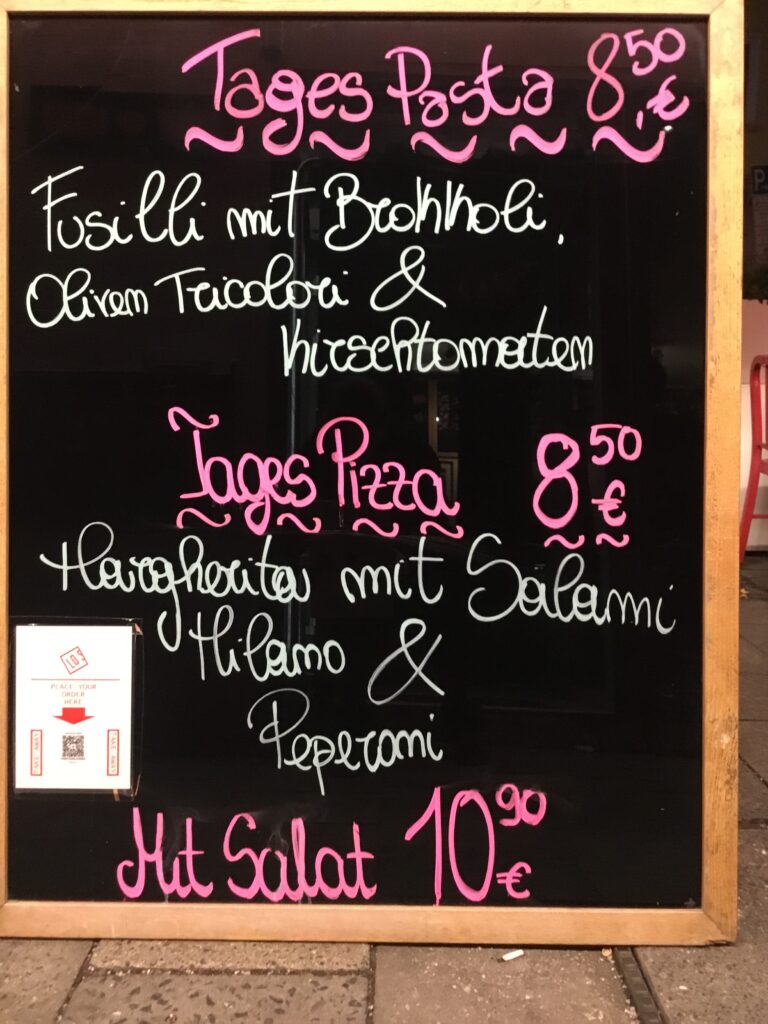 Tages Pasta 8,50 €
Fusilli mit Brokkoli,
Oliven Tricolori &
Kirschtomaten
Tages Pizza 8 50 €
Margherita mit Salami
Milano &
Peperoni
PLACE YOUR
ORDER
HERE
TAKE AWAY
TAKE AWAY
Mit Salat 10 90 €